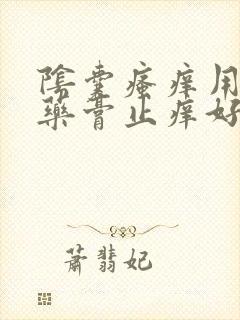 陰囊瘙痒用
藥膏止痒好
蕭翡妃